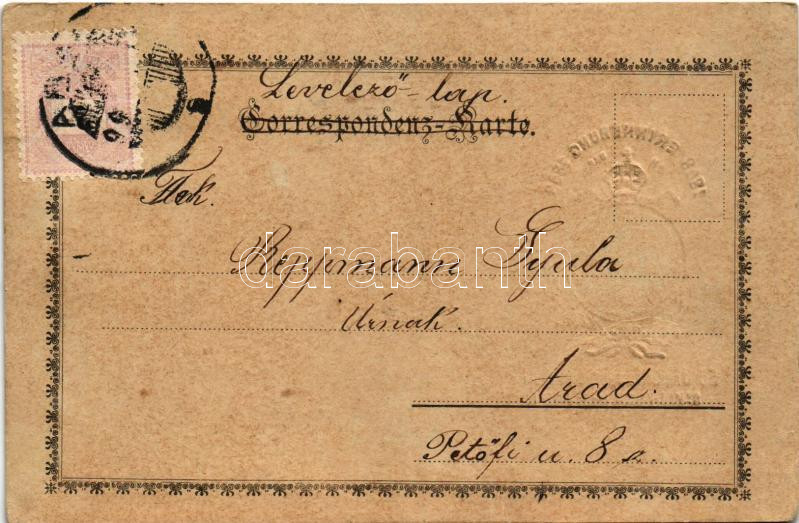 Levelező-lap.
Correspondenz-Karte.
Tek.
Reppmann Gyula
Úrnak.
Arad.
Petőfi u. 8 s.
darabanth.com